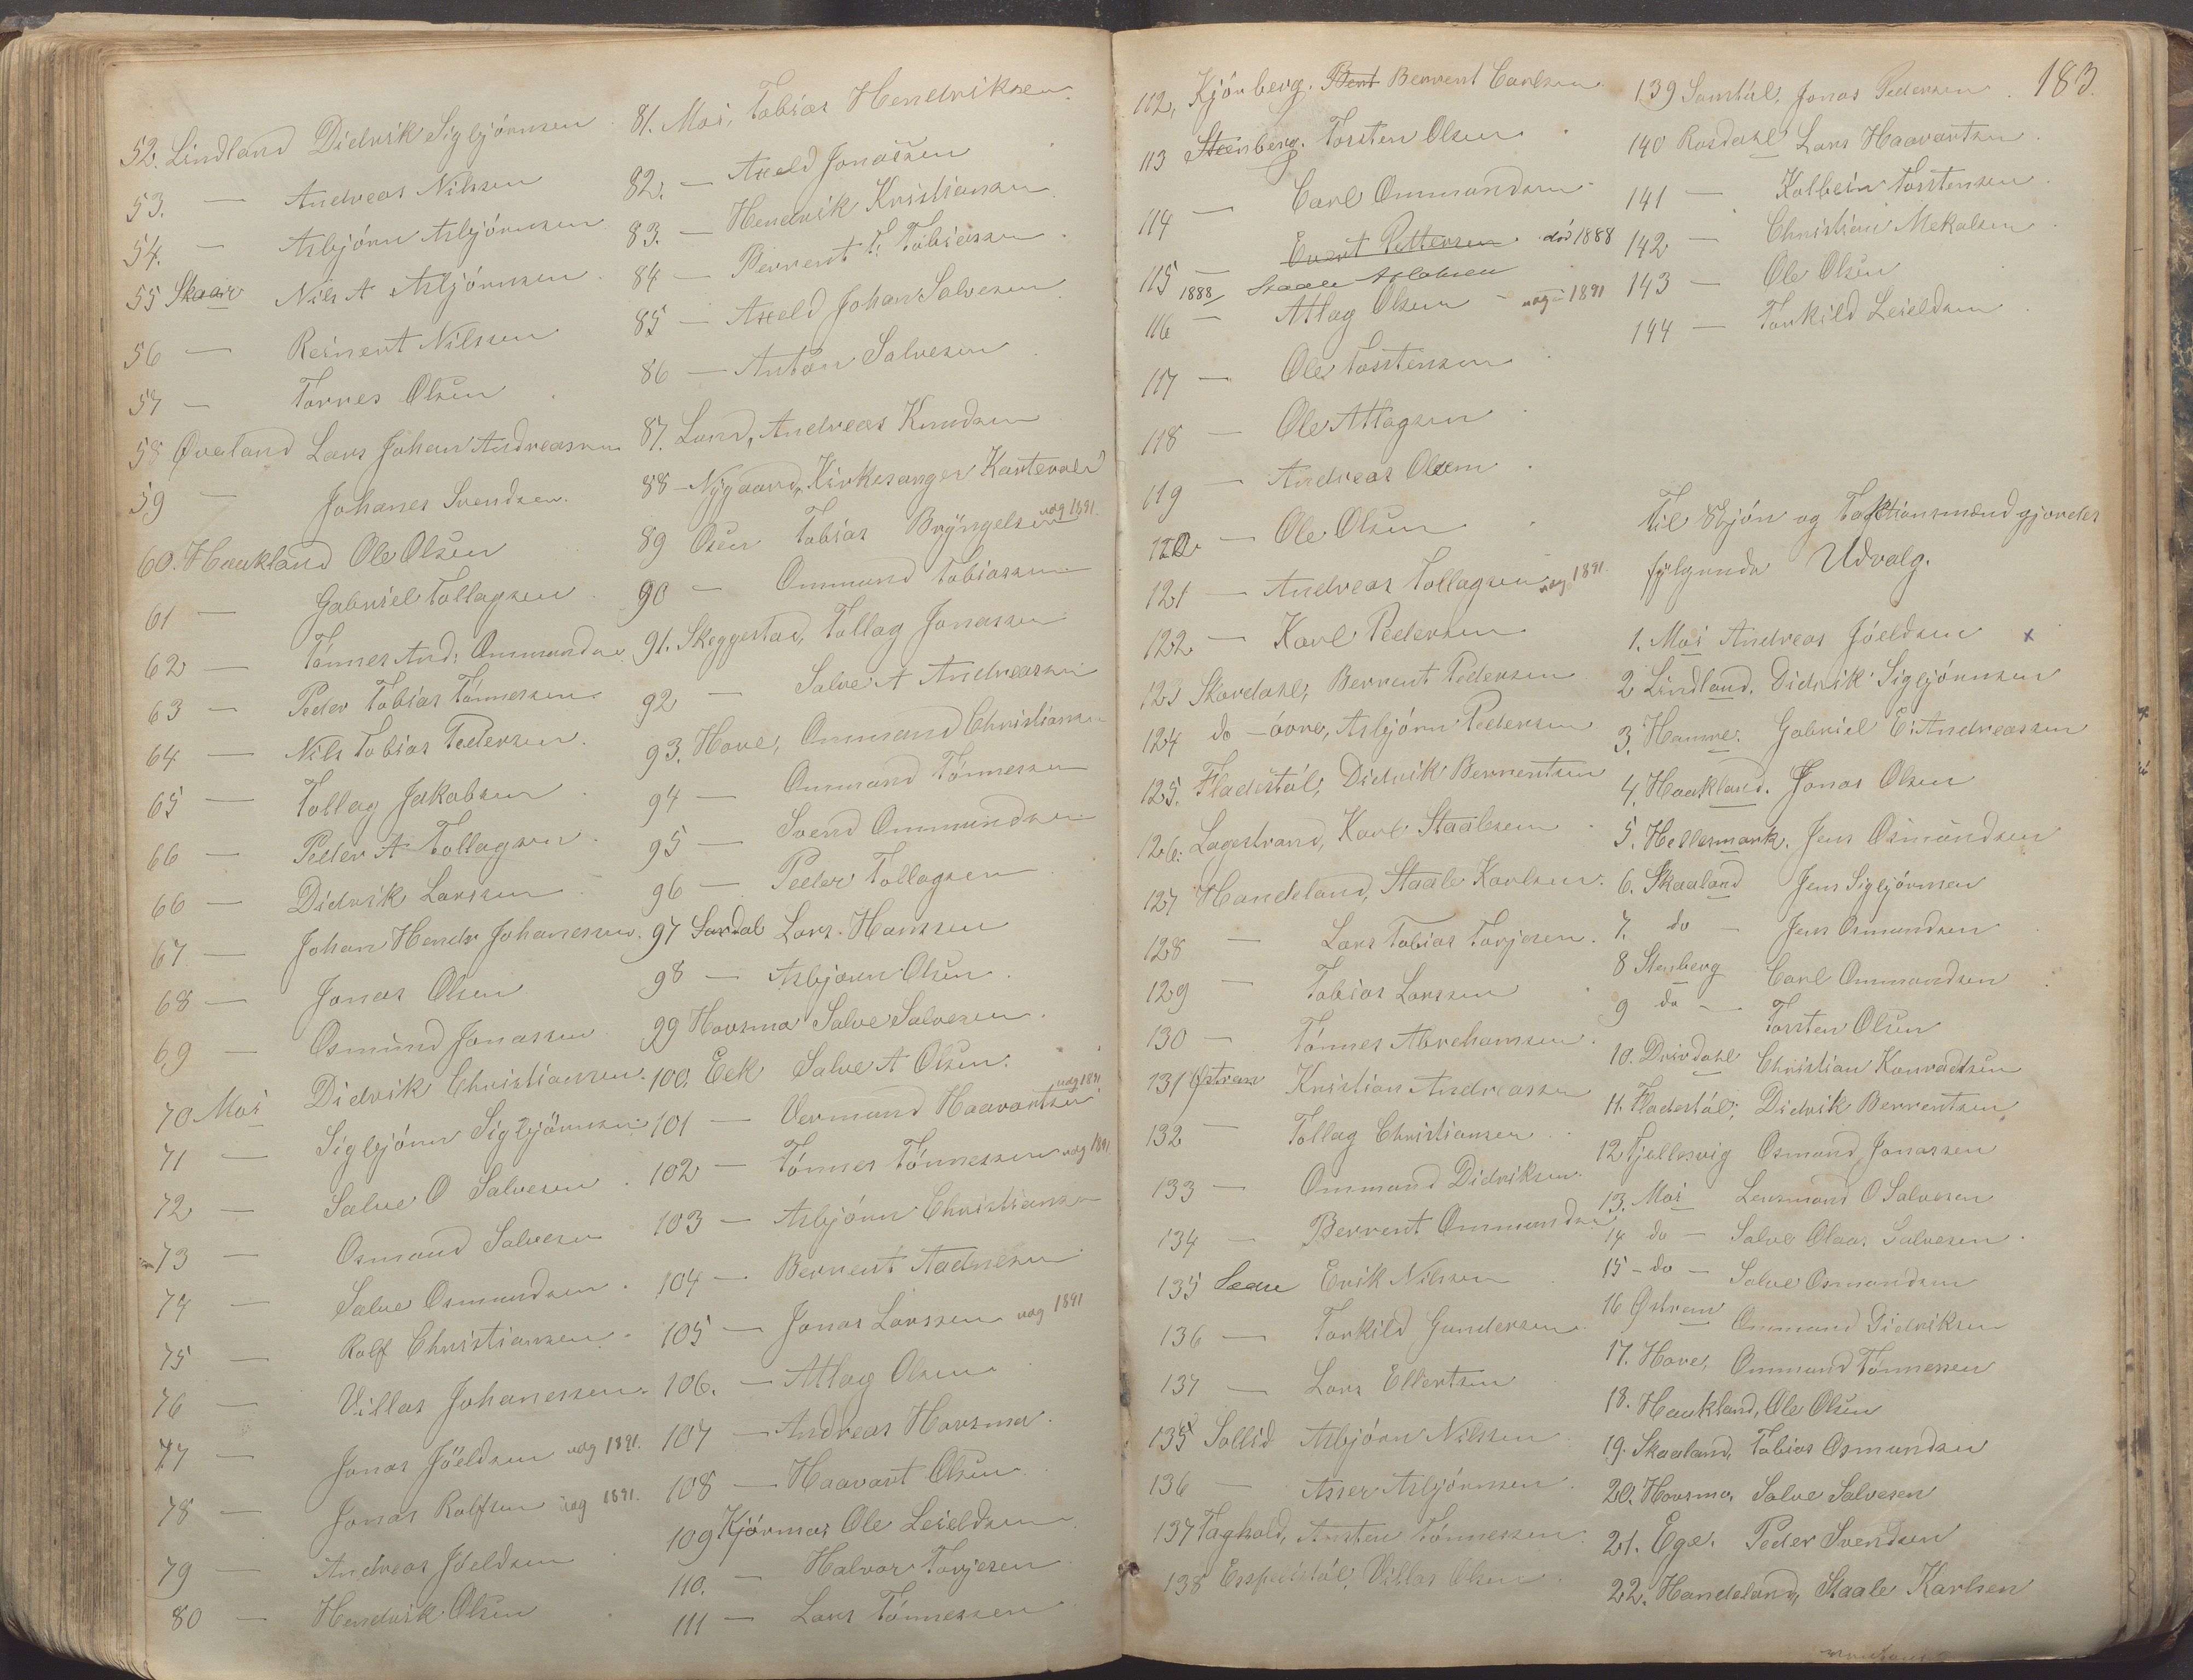 52. Lindland Didrik Sigbjörnsen
53. — Andreas Nilssen
54. — Asbjörn Asbjörnsen
55 Skaar Nils A Asbjörnsen
56 — Reinert Nilssen
57 — Tørres Olsen
58 Øveland Lars Johan Andreassen
59 — Johanes Svendsen.
60. Haukland Ole Olsen
61 — Gabriel Tollagsen
62 — Tönnes And: Ommundsen
63 — Peder Tobias Tönnessen
64 — Nils Tobias Pedersen.
65 — Tollag Jakobsen
66 — Peder A Tollagsen
66 — Didrik Larssen
67 — Johan Hendr Johanessen.
68 — Jonas Olsen
69 — Osmund Jonassen
70 Moi Didrik Christiansen.
71 — Sigbjörn Sigbjörnsen
72 — Salve O Salvesen
73 — Osmund Salvesen
74 — Salve Osmundsen
75 — Rolf Christiansen.
76 — Villas Johanessen.
77 — Jonas Jöeldsen udg 1891.
78 — Jonas Rolfsen udg 1891.
79 — Andreas Jöeldsen
80 — Hendrik Olsen
81. Moi, Tobias Hendriksen
82. — Axeld Jonassen
83. — Hendrik Kristiansen
84 — Berrent T. Tobiassen
85 — Axeld Johan Salvesen
86 — Anton Salvesen
87. Lund, Andreas Knudsen
88 — Nygaard, Kirkesanger Kartevold
89 Osen Tobias Bryngelsen udg 1891.
90 — Ommund Tobiassen
91. Skeggestad, Tollag Jonassen
92 — Salve A Andreassen
93. Hove, Ommund Christiansen
94 — Ommund Tönnessen
95 — Svend Ommundsen
96 — Peder Tollagsen
97 Surdal Lars Hanssen
98 — Asbjörn Olsen
99 Hovsmo Salve Salvesen.
100. Eek Salve A Olsen.
101 — Vermund Haavartsen udg 1891
102 — Tönnes Tönnessen udg 1891
103 — Asbjörn Christiansen
104 — Berrent Aadnesen
105 — Jonas Larssen udg 1891
106. — Atlag Olsen
107 — Andreas Hovsmo.
108 — Haavart Olsen
109 Kjörmo, Ole Leieldsen
110. — Halvor Torjesen
111 — Lars Tönnessen
183.
112, Kjönberg. Bent Berrent Carlsen
113 Steenberg. Torsten Olsen
114 — Carl Ommundsen
115 — Evert Pettersen död 1888
1888 Staale Aslaksen
116 — Atlag Olsen — udgår 1891
117 — Ole Torstensen
118 — Ole Atlagsen
119 — Andreas Olsen
120 — Ole Olsen
121 — Andreas Tollagsen udg 1891.
122 — Karl Pedersen
123 Skordahl, Berrent Pedersen
124 do — övre, Asbjörn Pedersen
125. Fladstöl, Didrik Berrentsen
126. Lagestrand, Karl Staalesen
127 Handeland, Staale Karlsen.
128 — Lars Tobias Torjesen.
129 — Tobias Larssen
130 — Tönnes Abrahamsen.
131 Østrem Kristian Andreassen
132 — Tollag Christiansen
133 — Ommund Didriksen
134 — Berrent Ommundsen
135 Erik Nilssen
136 — Torkild Gundersen
137 — Lars Ellertsen
135 Sollid Asbjörn Nilssen
136 — Asser Asbjörnsen.
137 Taghold, Austen Tönnessen
138 Espestöl, Villas Olsen
139 Somstöl, Jonas Pedersen
140 Rosdahl Lars Haavartsen
141 — Kolbein Torstensen
142 — Christian Mekalsen
143 — Ole Olsen
144 — Torkild Leieldsen
Til Skjön og Taxtionsmænd gjordes
fylgende Udvalg.
1. Moi Andreas Jöeldsen x
2 Lindland. Didrik Sigbjörnsen
3. Hamre. Gabriel E: Andreassen
4. Haukland. Jonas Olsen
5. Hellesmark. Jens Osmundsen
6. Skaaland Jens Sigbjörnsen
7. do — Jens Osmundsen
8 Stenberg Carl Ommundsen
9 do — Torsten Olsen
10. Drivdahl Christian Konradtsen
11. Fladestöl, Didrik Berrentsen
12 Tjellesvig Osmund Jonassen
13. Moi Lensmand O Salvesen
14 do — Salve Olaus Salvesen.
15 — do — Salve Osmundsen
16 Østrem Ommund Didriksen
17. Hove, Ommund Tönnessen
18. Haukland, Ole Olsen
19. Skaaland, Tobias Osmundsen
20. Hovsmo, Salve Salvesen
21. Ege. Peder Svendsen
22. Handeland, Staale Karlsen